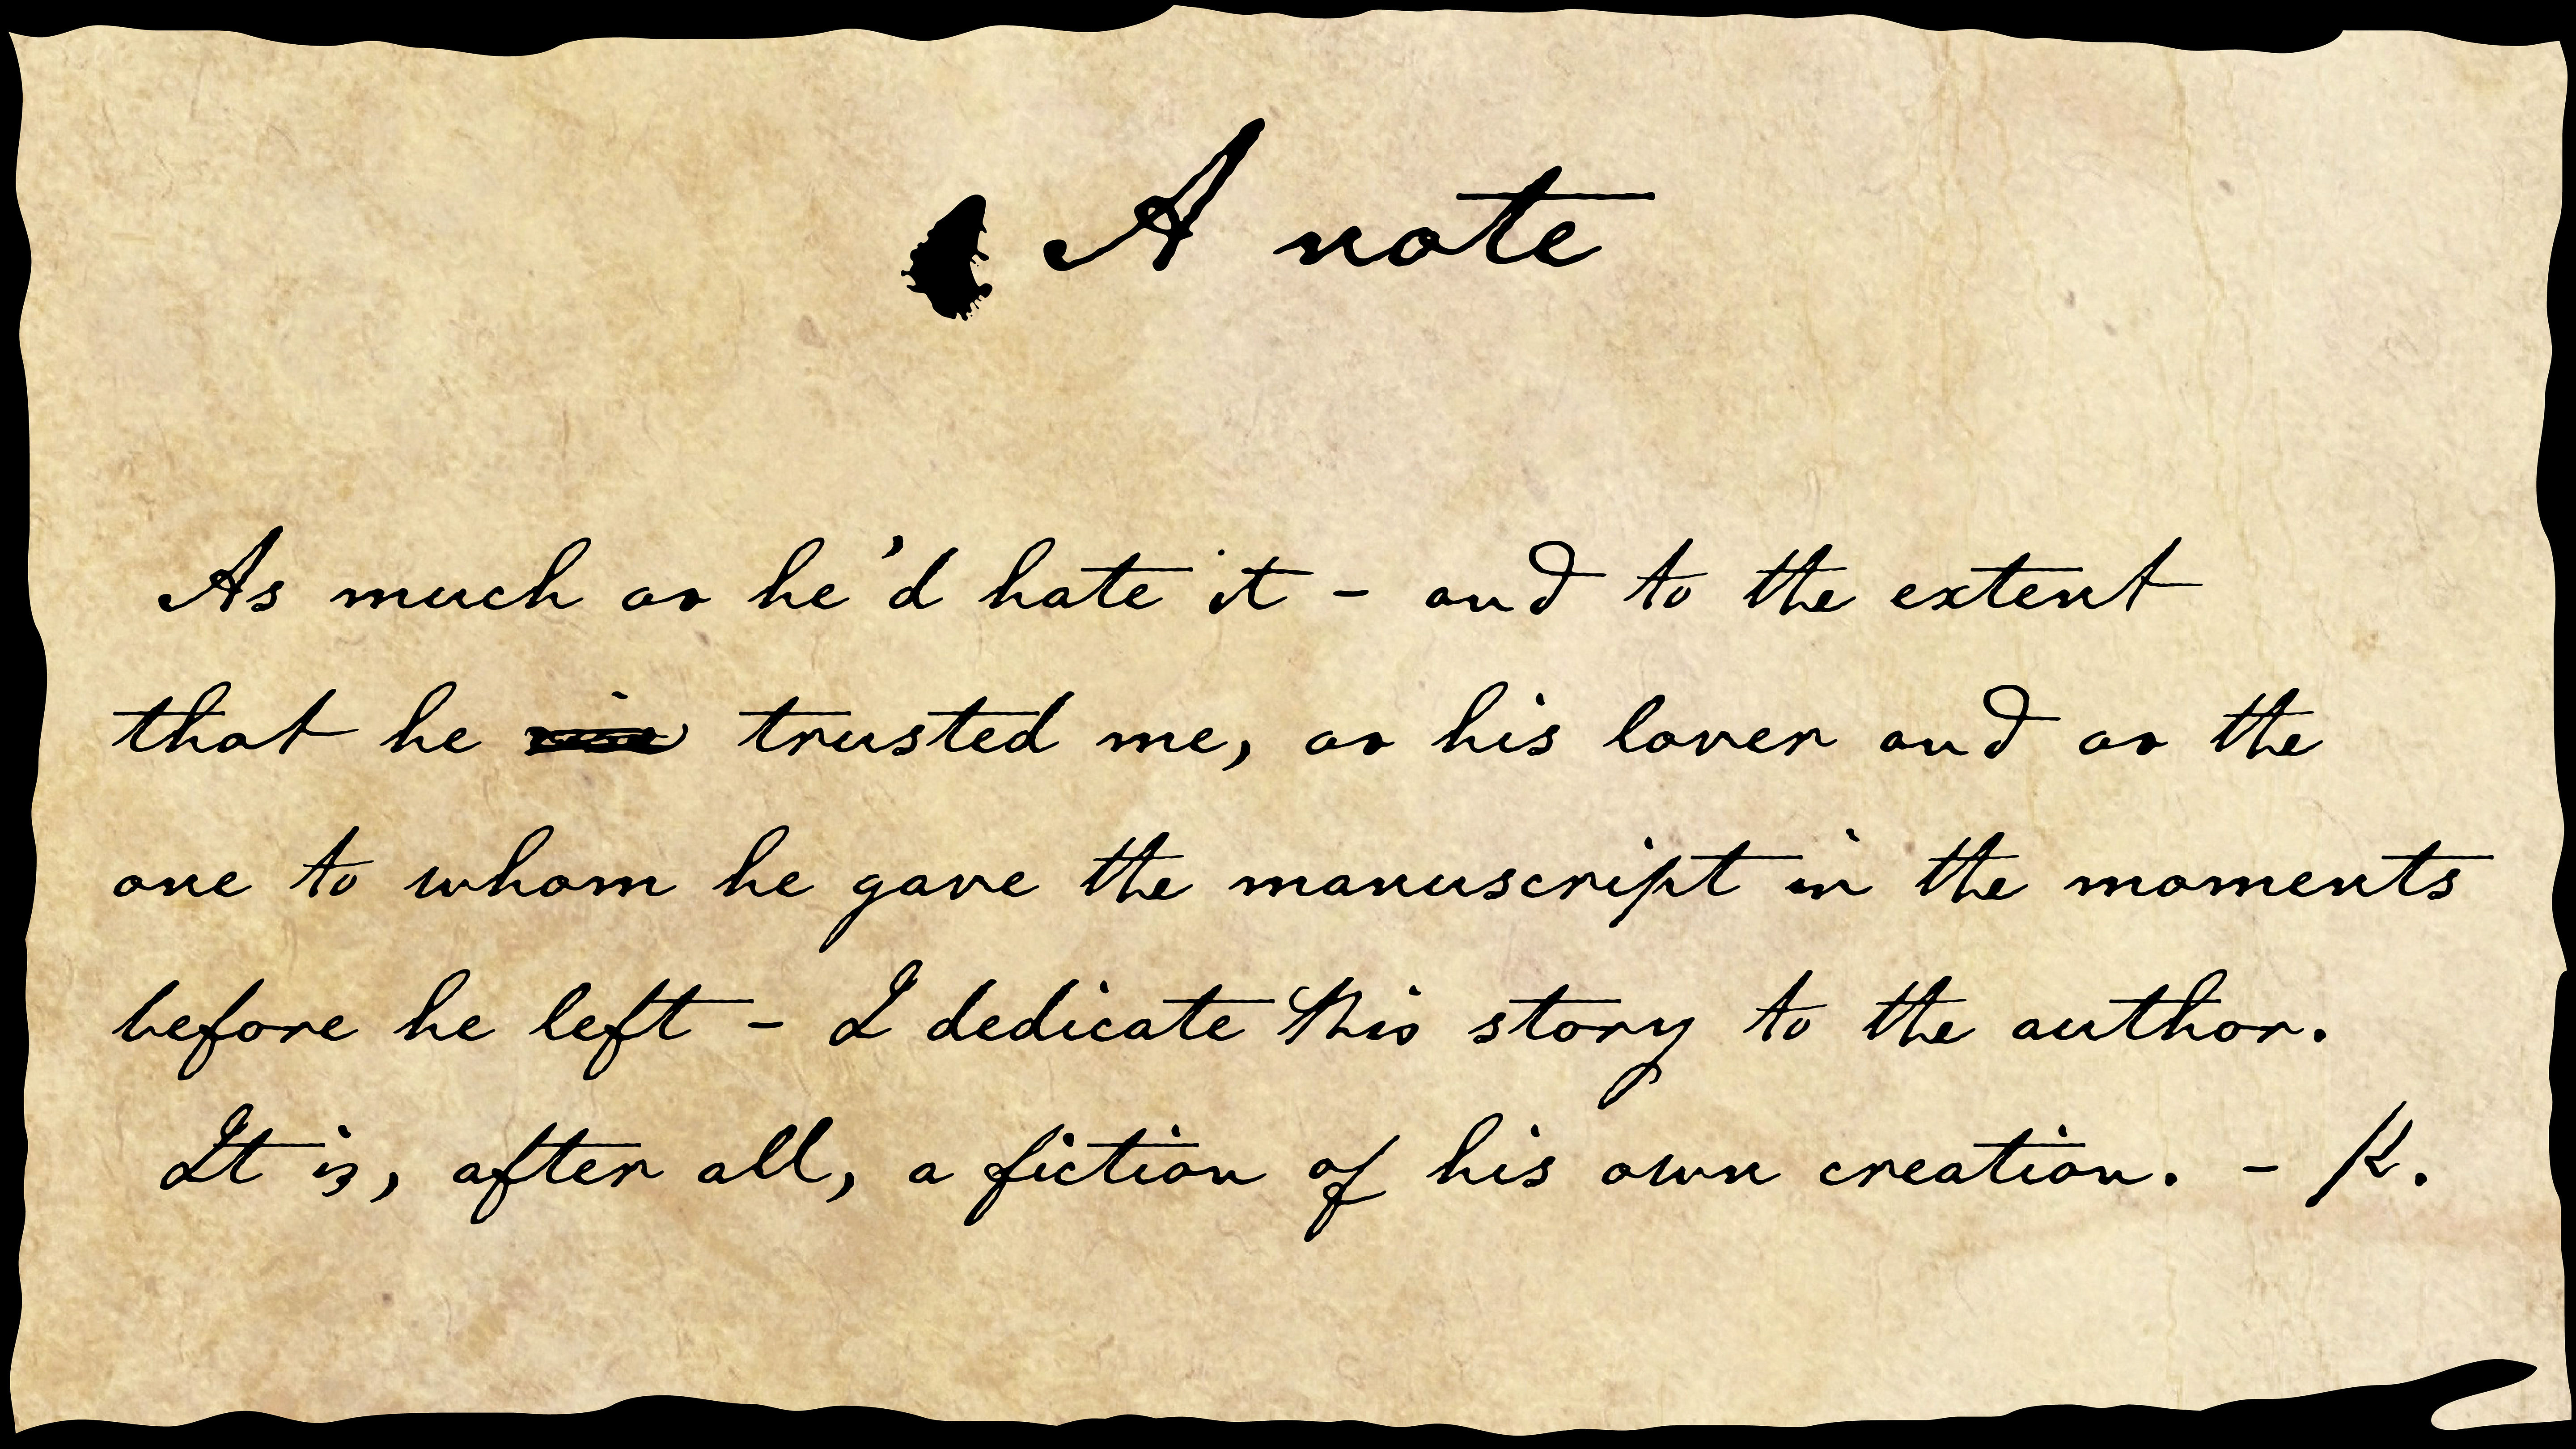 A note
As much as he'd hate it - and to the extent
that he trusted me, as his lover and as the
one to whom he gave the manuscript in the moments
before he left - I dedicate this story to the author.
It is, after all, a fiction of his own creation. - K.